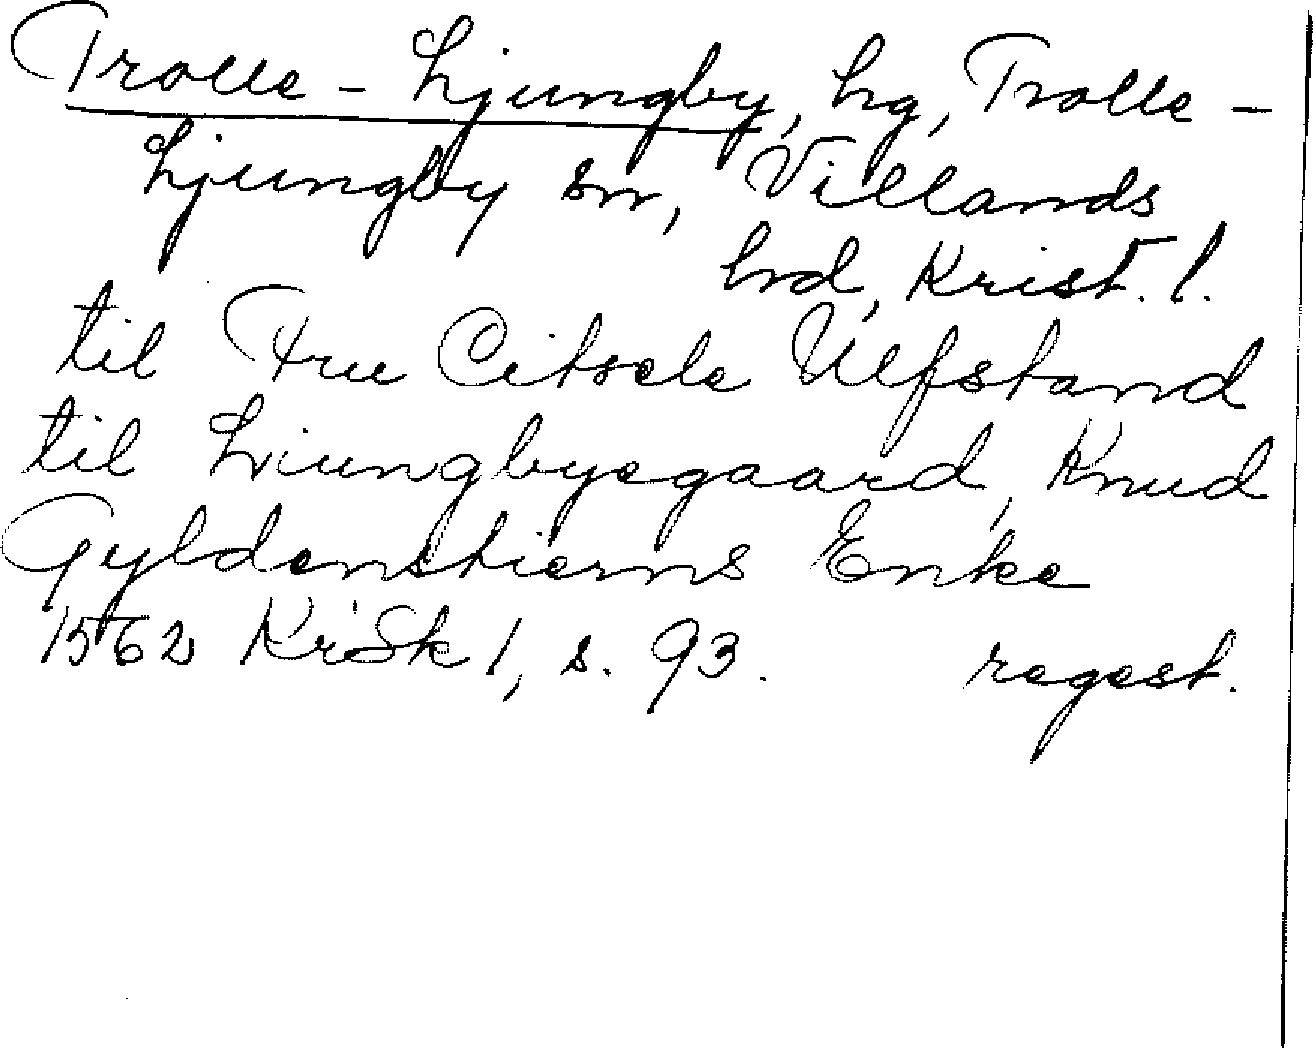 Trolle-Ljungby, hg, Trolle-
Ljungby sn, Villands
hd, Krist. l.
til Fru Citsele Ulfstand
til Liungbyegaard, Knud
Gyldenstierns Enke
1562 KrSk 1, s. 93. regest.